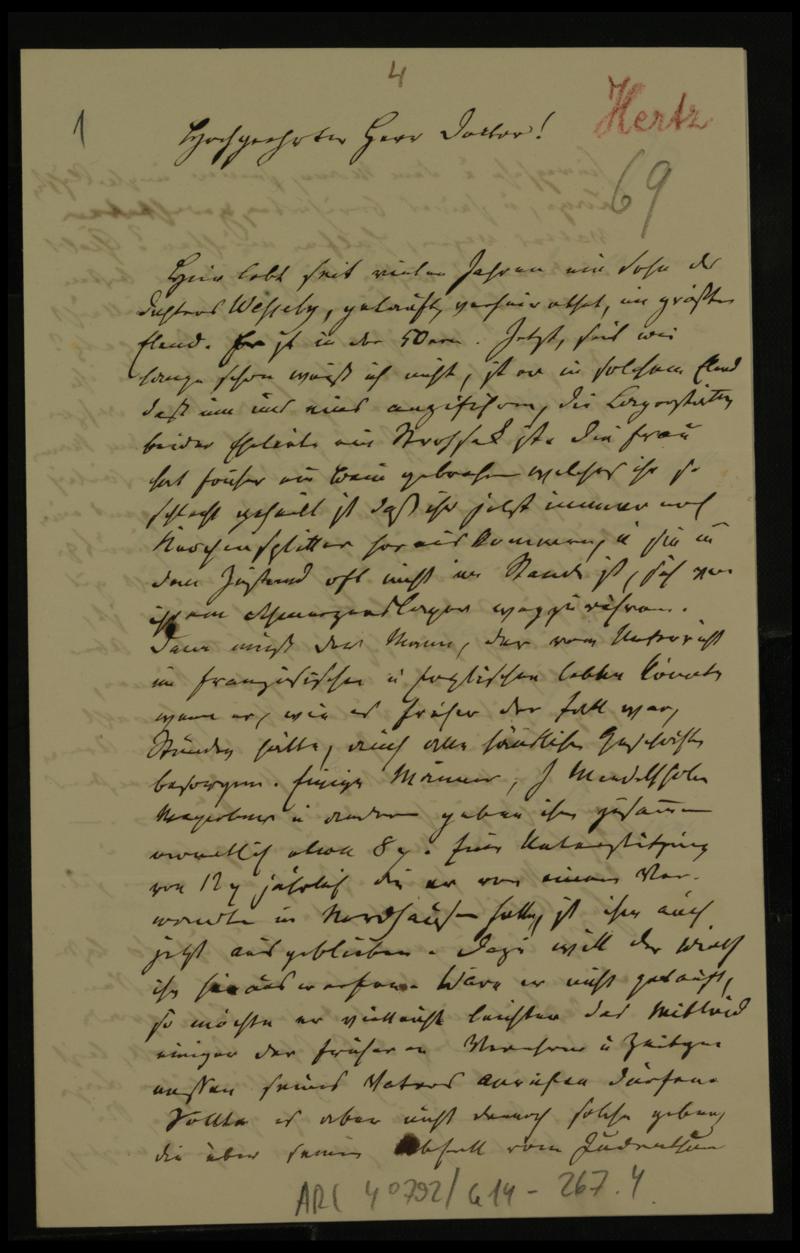 4
1
Hertz
Hochgeehrter Herr Doctor!
69
Hier lebt seit vielen Jahren ein Sohn des
Wessely, getauft, verheirathet, im größten
Elend. Er ist in den 50ern. Jetzt, seit wie
lange schon weiß ich nicht, ist er in solchem Elend
daß ihm und eines die Lagerstätten
beider Eheleute ein Strohsack ist. Die Frau
hat früher ein Bein gebrochen welches ihr so
schlecht geheilt ist daß ihr jetzt immer noch
Knochensplitter heraus kommen, u sie in
dem Zustand oft nicht im Stande ist, sich von
ihrem Schmerzenslager wegzurühren.
Dann muß der Mann, der vom Unterricht
im französischen u Englischen leben könnte
wenn er, wie es früher der Fall war,
Stunden hätte, auch alle häuslichen Geschäfte
besorgen. Einige Männer, J Mendelssohn
u andere geben ihm zusammen
monatlich etwa 8 Eine Unterstützung
von 12 jährlich die er von einem Ver-
wandten in Nordhausen hatte, ist ihm auch
jetzt ausgeblieben. Dazu will der Wirth
ihn hinauswerfen. Wäre er nicht getauft,
so möchte er vielleicht leichter das Mitleid
einiger der früheren Verehrer u Zeitge-
nossen seines Vaters anrufen dürfen.
Sollte es aber nicht dennoch solche geben,
die über seinen Abfall vom Judenthum
ARC 4°792/G14-267.4